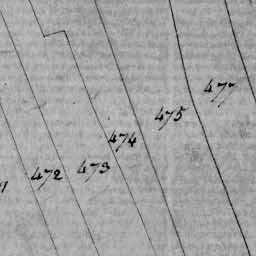 472
473
474
475
477